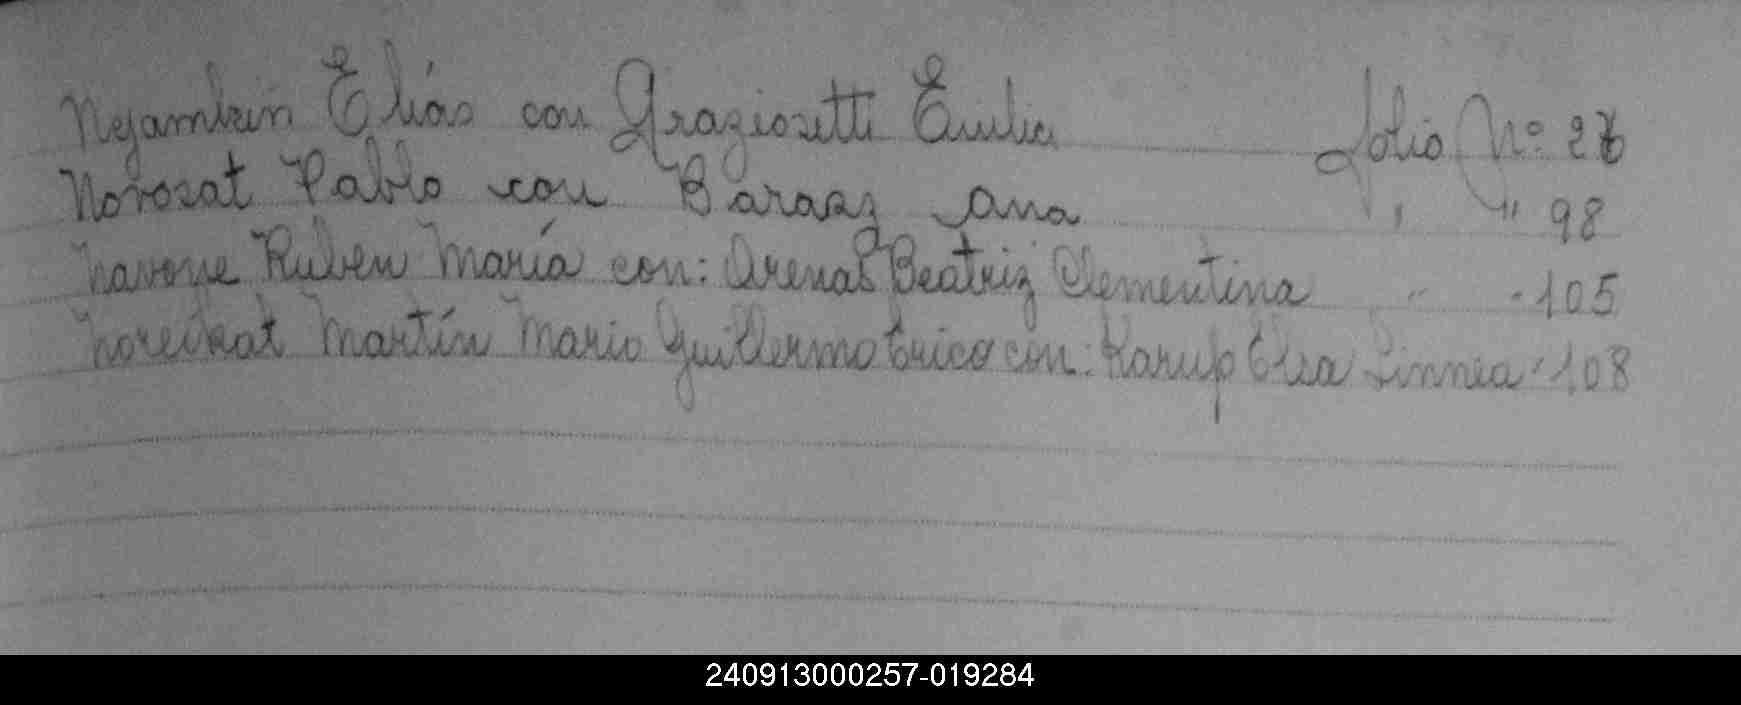 Nejamkin Elías con Graziosetti Emilia folio Nº 26
Novosat Pablo con Barasz Ana " " 98
Navone Ruben María con: Arenas Beatriz Clementina " " 105
Noreikat Martín Mario Guillermo Erico con: Karup Elsa Linnea " 108
240913000257-019284